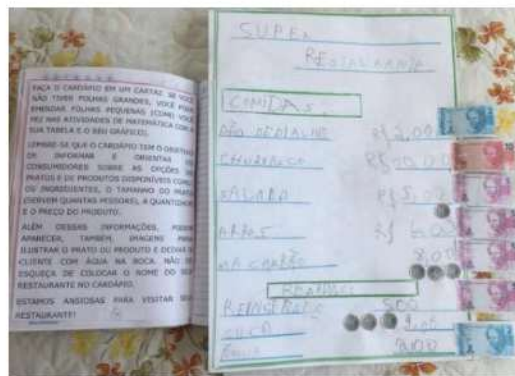 FAÇA O CARDÁPIO EM UM CARTAZ. SE VOCÊ
NÃO TIVER FOLHAS GRANDES, VOCÊ PODE
EMENDAR FOLHAS PEQUENAS (COMO VOCÊ
FEZ NAS ATIVIDADES DE MATEMÁTICA COM A
SUA TABELA E O SEU GRÁFICO).
LEMBRE-SE QUE O CARDÁPIO TEM O OBJETIVO
DE INFORMAR E ORIENTAR OS
CONSUMIDORES SOBRE AS OPÇÕES DE
PRATOS E DE PRODUTOS DISPONÍVEIS COMO
OS INGREDIENTES, O TAMANHO DO PRATO
(SERVEM QUANTAS PESSOAS), A QUANTIDADE
E O PREÇO DO PRODUTO.
ALÉM DESSAS INFORMAÇÕES, PODEM
APARECER, TAMBÉM, IMAGENS PARA
ILUSTRAR O PRATO OU PRODUTO E DEIXAR O
CLIENTE COM ÁGUA NA BOCA. NÃO SE
ESQUEÇA DE COLOCAR O NOME DO SEU
RESTAURANTE NO CARDÁPIO.
ESTAMOS ANSIOSAS PARA VISITAR SEU
RESTAURANTE!
SUPER
COMIDAS
R$ 2,00
CHURRASCO
SALADA R$ 5,00
R$ 6,00
8,00
500
SUCO